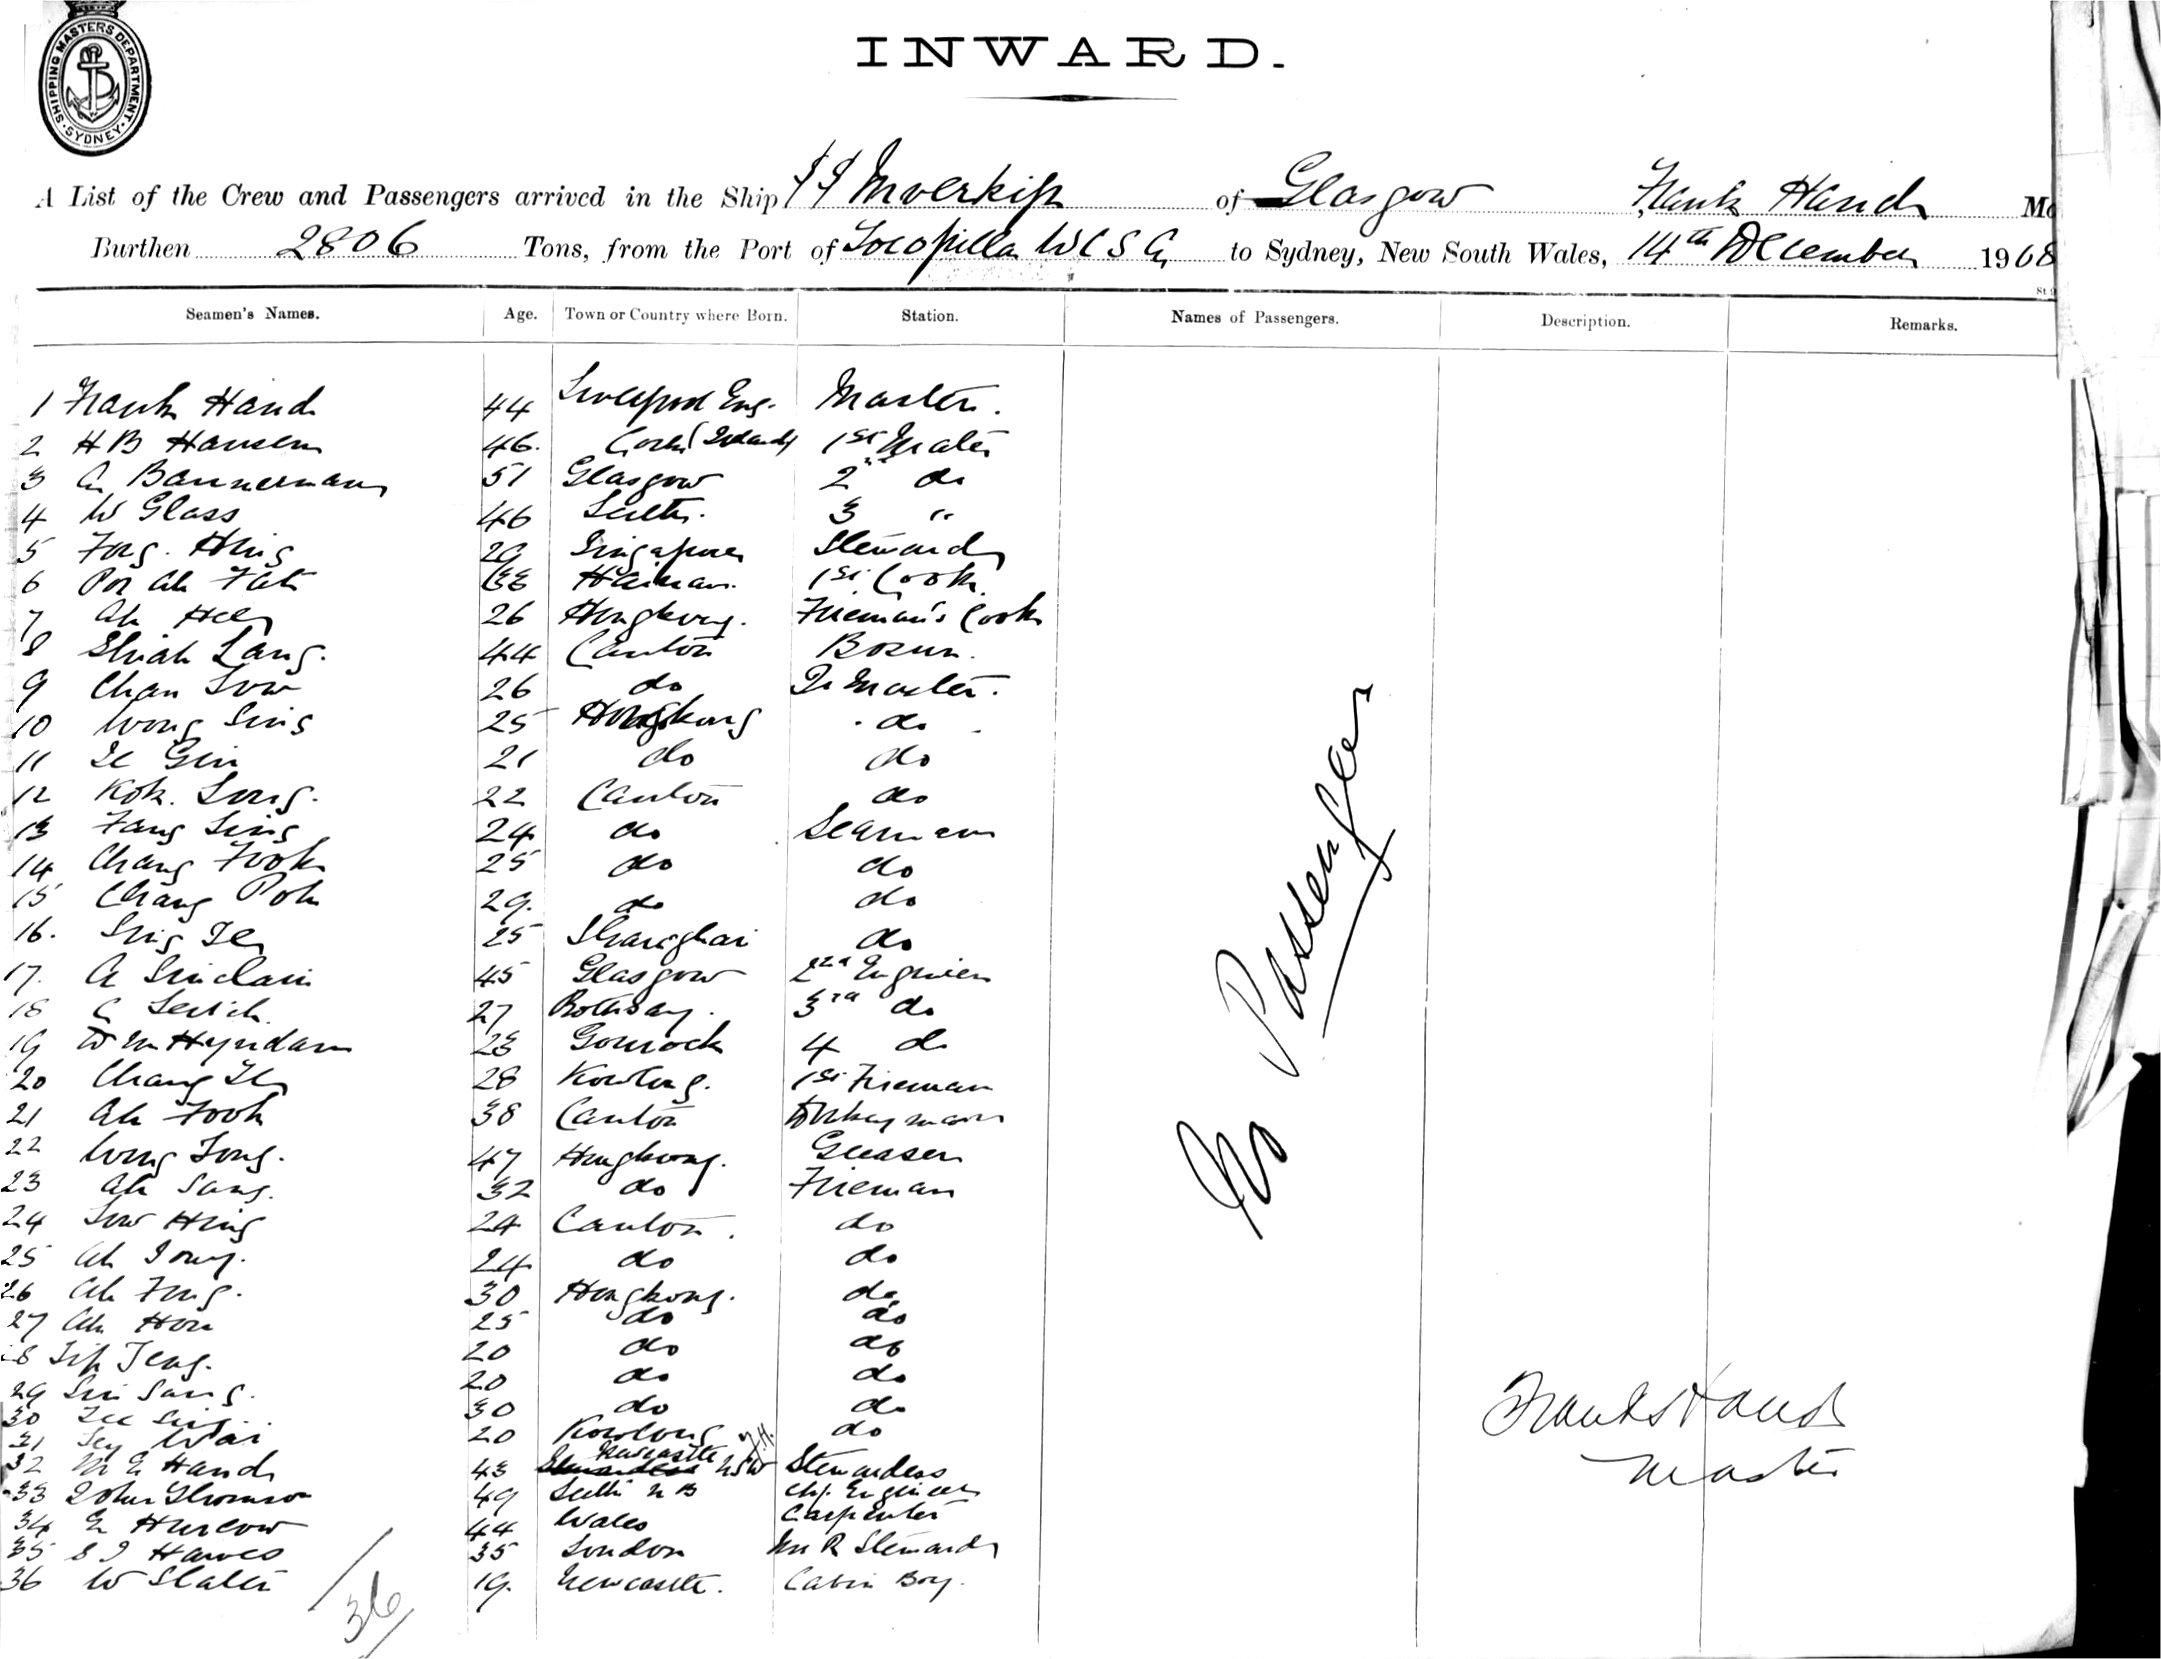 SHIPPING MASTERS DEPARTMENT. SYDNEY.
INWARD.
A List of the Crew and Passengers arrived in the Ship SS Inverkip of Glasgow Frank Hand
Burthen 2806 Tons, from the Port of Tocopilla W C S A to Sydney, New South Wales, 14th December 1908
Seamen's Names. Age. Town or Country where Born. Station. Names of Passengers. Description. Remarks.
1 Frank Hand 44 Liverpool Eng. Master.
2 H B Hansen 46. Cork (Ireland) 1st Mate
3 A Bannerman 51 Glasgow 2nd do
4 W Glass 46 Leith. 3 "
5 Fong. Hing 29 Singapore Steward
6 Poi Ah Fatt 33 Hainan. 1st Cook
7 Ah Hee 26 Hongkong. Fireman's Cook
8 Shiah Lang. 44 Canton Bosun.
9 Chan Low 26 do Qr Master.
10 Wong Sing 25 Hongkong do
11 Le Gin 21 do do
12 Kok. Long. 22 Canton do
13 Fang Sing 24 do Seaman
14 Chang Fook 25 do do
15 Chang Poh 29. do do
16. Sing 25 Shanghai do
17. A Sinclair 45 Glasgow 2nd Engineer
18 27 Rothsay. 3rd do
19 W M Hyndam 23 Gourock 4 do
20 Chang 28 Kowlong. 1st Fireman
21 Ah Fook 38 Canton Donkeyman
22 Wong Tong. 47 Hongkong. Greaser
23 Ah Sang. 32 do Fireman
24 Low Hing 24 Canton. do
25 Ah 24 do do
26 Ah Fong. 30 Hongkong. do
27 Ah Hoi 25 do do
28 20 do do
29 20 do do
30 30 do do
31 Wai 20 Kowlong do
32 M E Hand 43 Newcastle NSW F.H. Stewardess
33 John Thomson 49 Leith N B Chf. Engineer
34 E Hurcow 44 Wales Carpenter
35 S J Hawes 35 London M R Steward
36 W Slater 19. Newcastle. Cabin Boy.
36
No Passengers
Frank Hand
Master